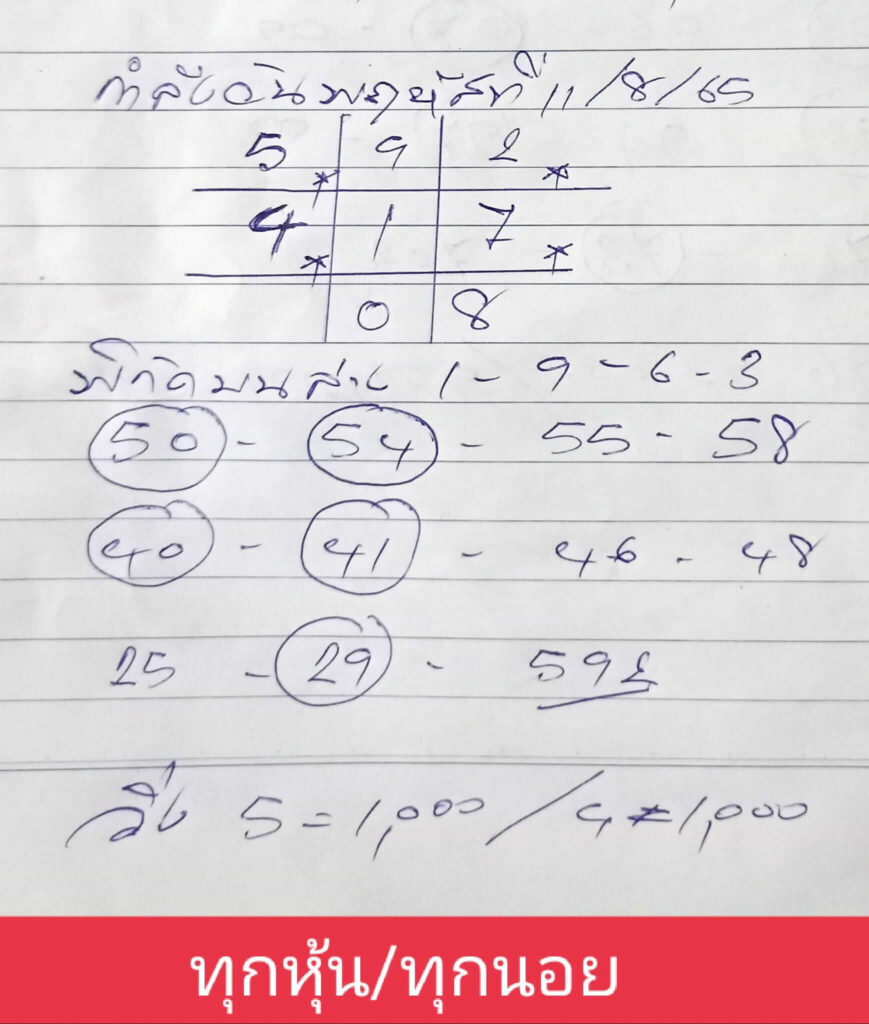 กำลังวันพฤหัสที่ 11/8/65
5 9 2
4 1 7
0 8
พิกัดบนล่าง 1-9-6-3
50 - 54 - 55 - 58
40 - 41 - 46 - 48
25 - 29 - 592
วิ่ง 5 = 1,000 / 4 = 1,000
ทุกหุ้น/ทุกนอย